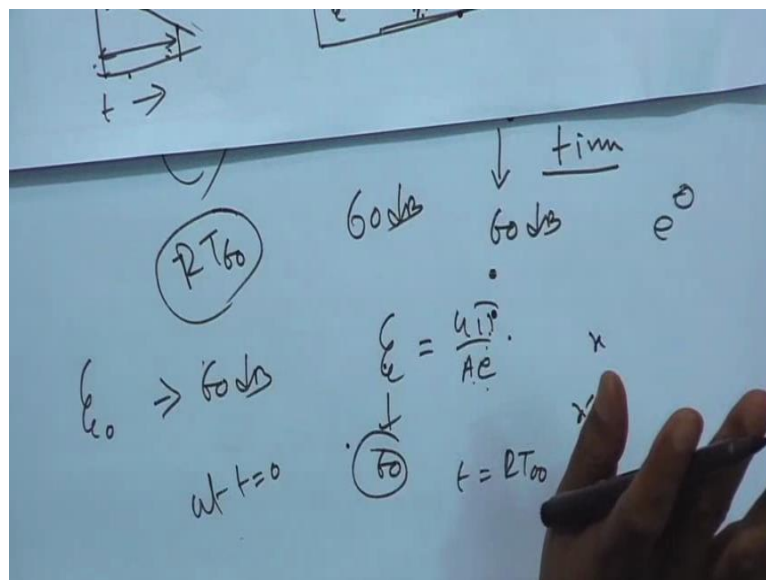 t →
time
RT60
60 dB
60 dB
e^0
ξ = 4Π / Ac
x
ξ0 → 60 dB
at t=0
60
t = RT60